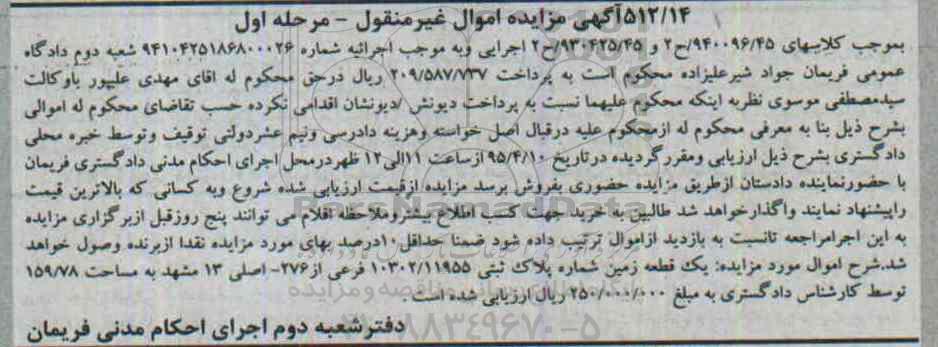 ۵۱۲/۱۴آگهی مزایده اموال غیرمنقول - مرحله اول
بموجب کلاسهای ۹۴۰۰۹۶/۴۵/ح۲ و ۹۳۰۴۲۵/۴۵/ح۲ اجرایی وبه موجب اجرائیه شماره ۹۴۱۰۴۲۵۱۸۶۸۰۰۰۲۶ شعبه دوم دادگاه
عمومی فریمان جواد شیرعلیزاده محکوم است به پرداخت ۲۰۹/۵۸۷/۷۳۷ ریال درحق محکوم له اقای مهدی علیپور باوکالت
سیدمصطفی موسوی نظربه اینکه محکوم علیهما نسبت به پرداخت دیونش /دیونشان اقدامی نکرده حسب تقاضای محکوم له اموالی
بشرح ذیل بنا به معرفی محکوم له ازمحکوم علیه درقبال اصل خواسته وهزینه دادرسی ونیم عشردولتی توقیف وتوسط خبره محلی
دادگستری بشرح ذیل ارزیابی ومقررگردیده درتاریخ ۹۵/۴/۱۰ ازساعت ۱۱الی۱۲ ظهردرمحل اجرای احکام مدنی دادگستری فریمان
با حضورنماینده دادستان ازطریق مزایده حضوری بفروش برسد مزایده ازقیمت ارزیابی شده شروع وبه کسانی که بالاترین قیمت
راپیشنهاد نمایند واگذارخواهد شد طالبین به خرید جهت کسب اطلاع بیشتروملاحظه اقلام می توانند پنج روزقبل ازبرگزاری مزایده
به این اجرامراجعه تانسبت به بازدید ازاموال ترتیب داده شود ضمنا حداقل۱۰درصد بهای مورد مزایده نقدا ازبرنده وصول خواهد
شد.شرح اموال مورد مزایده: یک قطعه زمین شماره پلاک ثبتی ۱۰۳۰۲/۱۱۹۵۵ فرعی از۲۷۶- اصلی ۱۳ مشهد به مساحت ۱۵۹/۷۸
توسط کارشناس دادگستری به مبلغ ۲۵۰/۰۰۰/۰۰۰ ریال ارزیابی شده است .
دفترشعبه دوم اجرای احکام مدنی فریمان
ParsNamadData
۸۸۳۴۹۶۷۰-۵